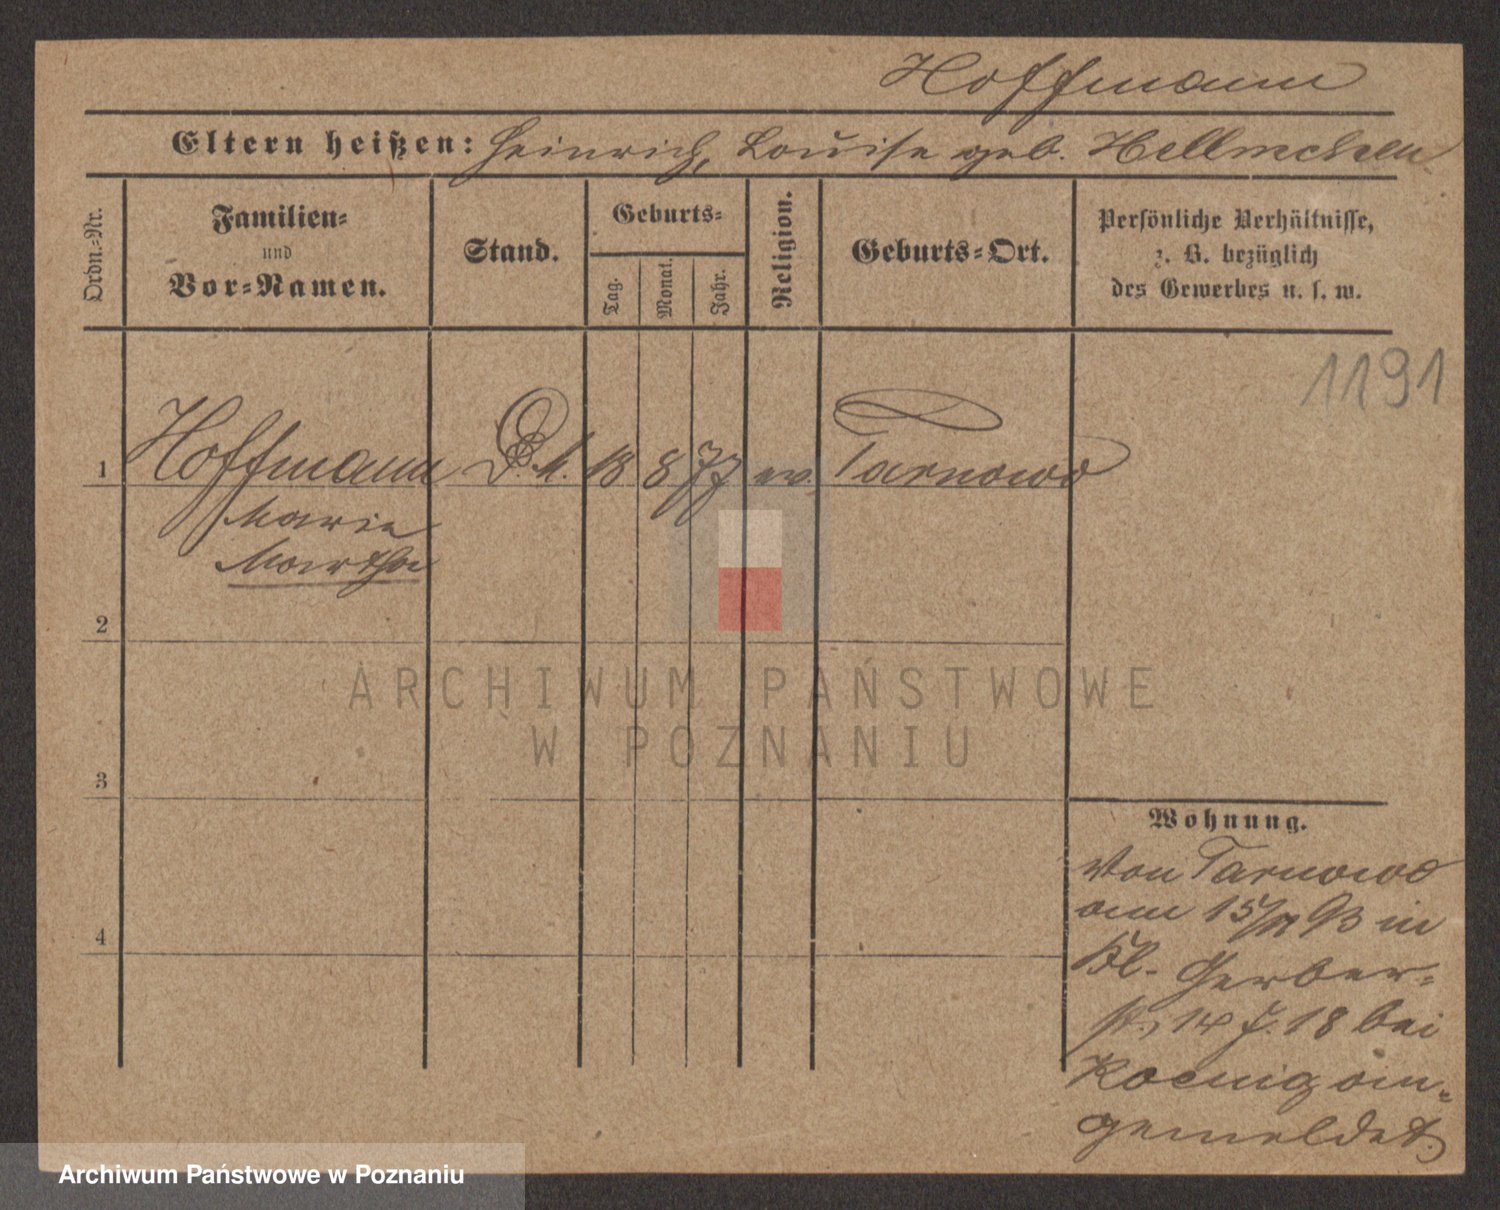 Hoffmann
Eltern heißen: Heinrich, Louise geb. Hellmchen
Ordn.-Nr.
Familien-
und
Vor-Namen.
Stand.
Geburts-
Tag.
Monat.
Jahr.
Religion.
Geburts-Ort.
Persönliche Verhältnisse,
z. B. bezüglich
des Gewerbes u. s. w.
1191
1 Hoffmann D. M. 18 8 77 ev. Tarnowo
Marie
Martha
2
ARCHIWUM PAŃSTWOWE
W POZNANIU
3
4
Wohnung.
Von Tarnowo
am 15/ 93 in
Kl. Gerber-
st. 14 bei
Koenig an-
gemeldet.
Archiwum Państwowe w Poznaniu